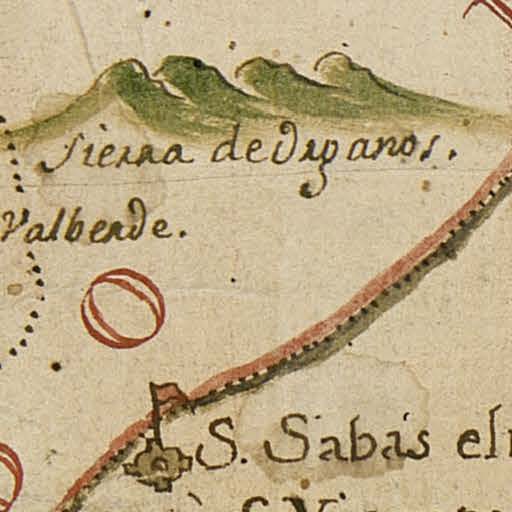 Sierra de Organos.
Valberde.
S. Sabas el